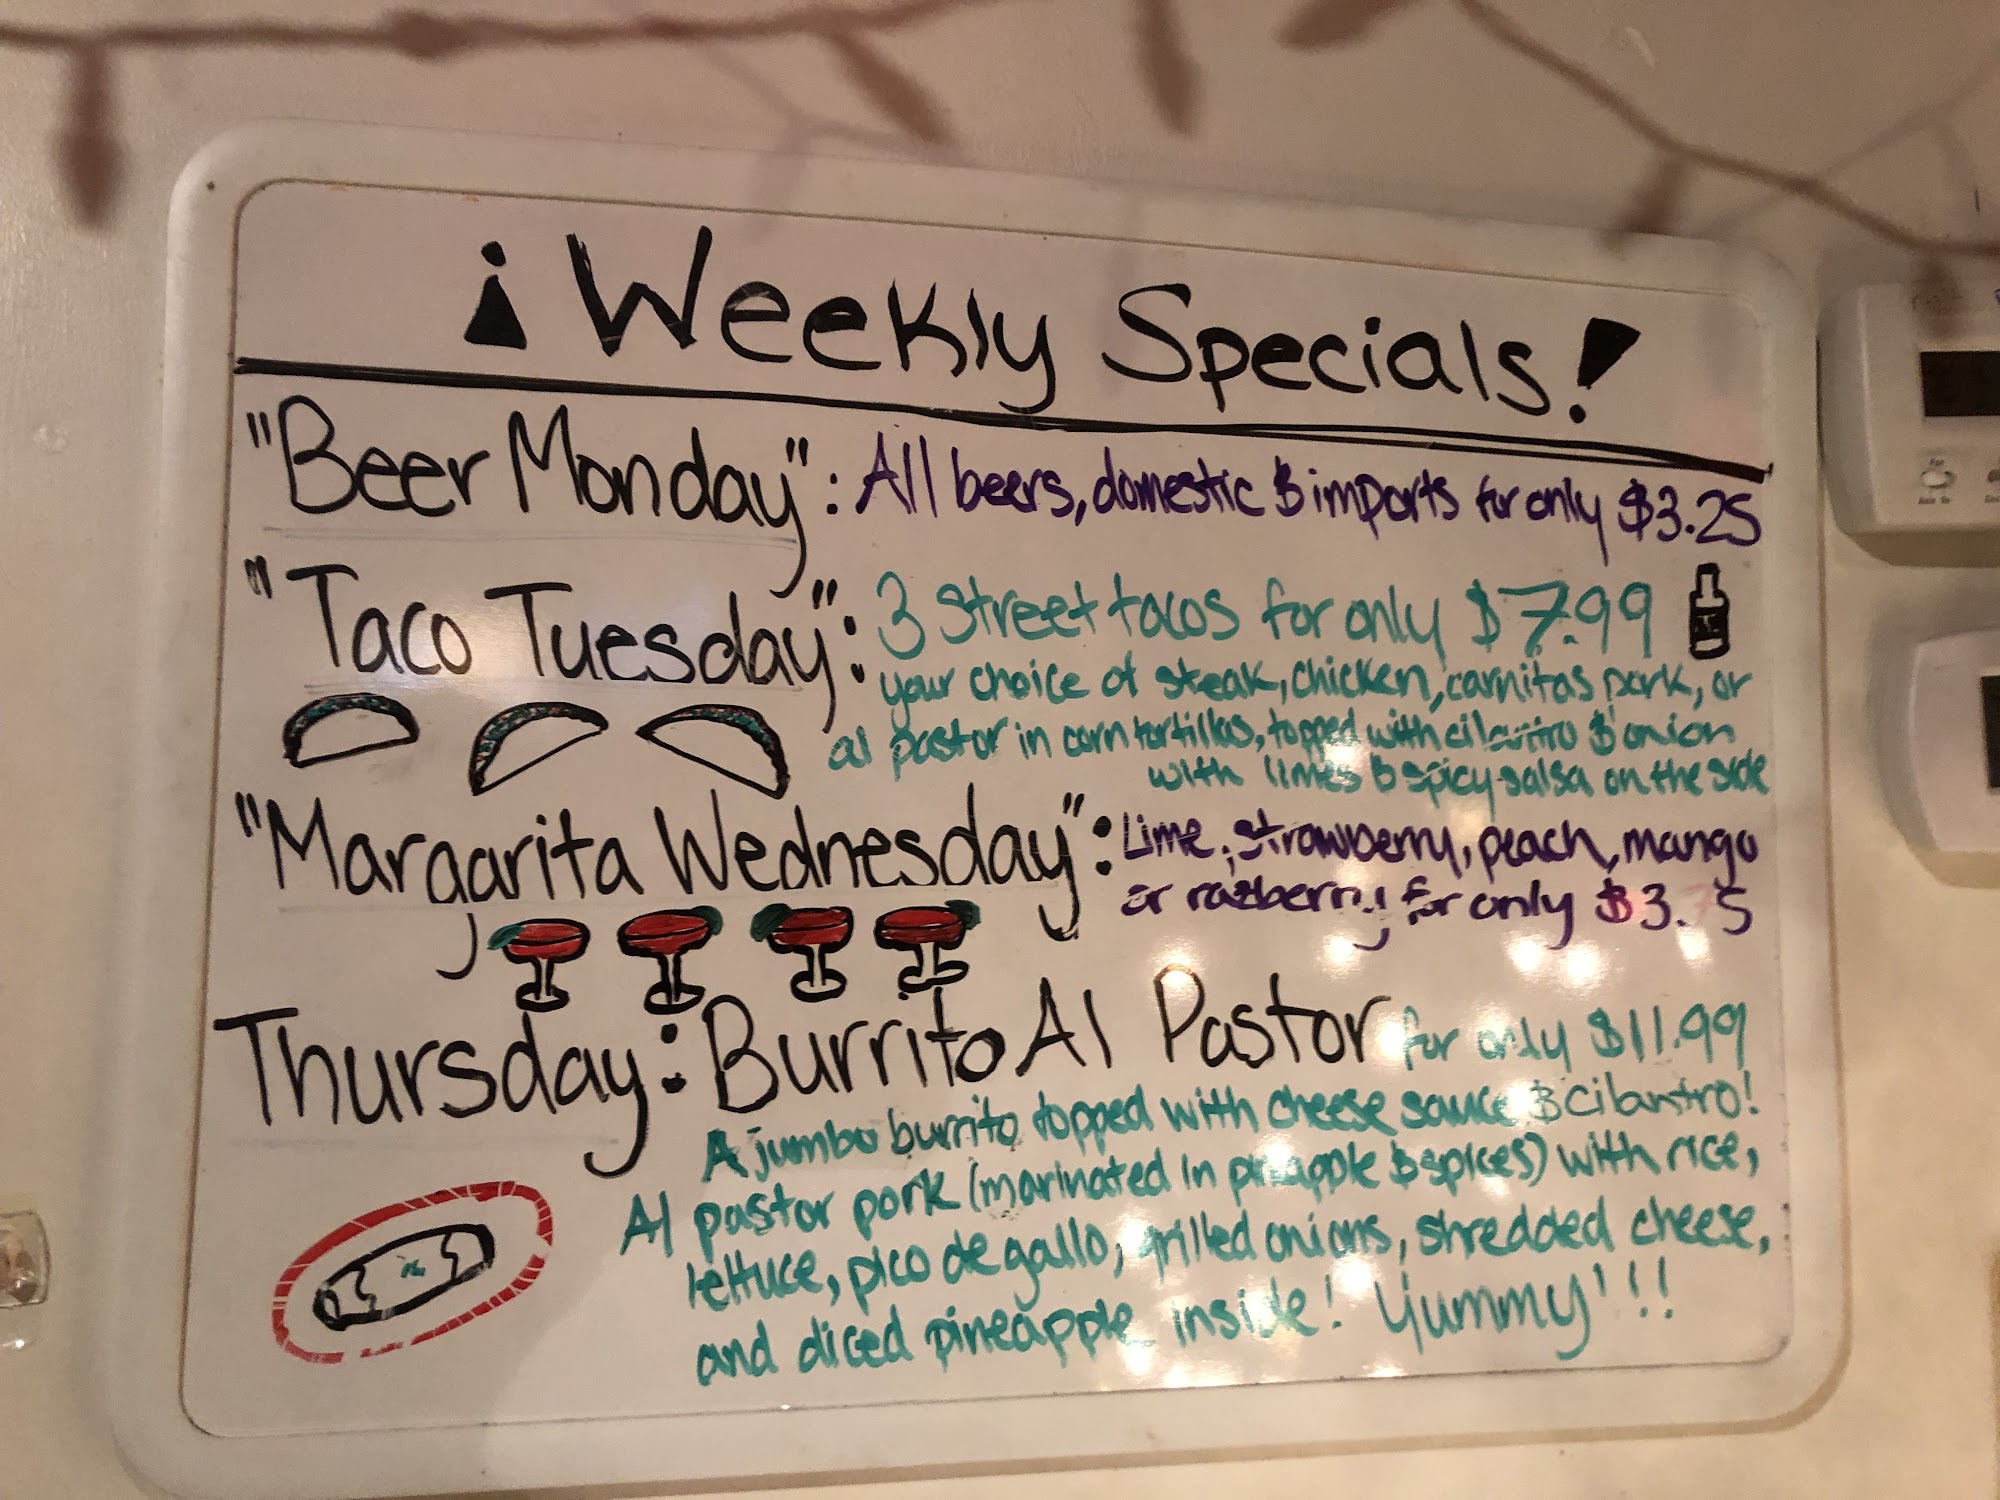 ¡Weekly Specials!
"Beer Monday": All beers, domestic & imports for only $3.25
"Taco Tuesday": 3 street tacos for only $7.99
your choice of steak, chicken, carnitas pork, or
al pastor in corn tortillas, topped with cilantro & onion
with limes & spicy salsa on the side
"Margarita Wednesday": Lime, strawberry, peach, mango
or razberry for only $3.75
Thursday: Burrito Al Pastor for only $11.99
A jumbo burrito topped with cheese sauce & cilantro!
Al pastor pork (marinated in pineapple & spices) with rice,
lettuce, pico de gallo, grilled onions, shredded cheese,
and diced pineapple inside! Yummy!!!